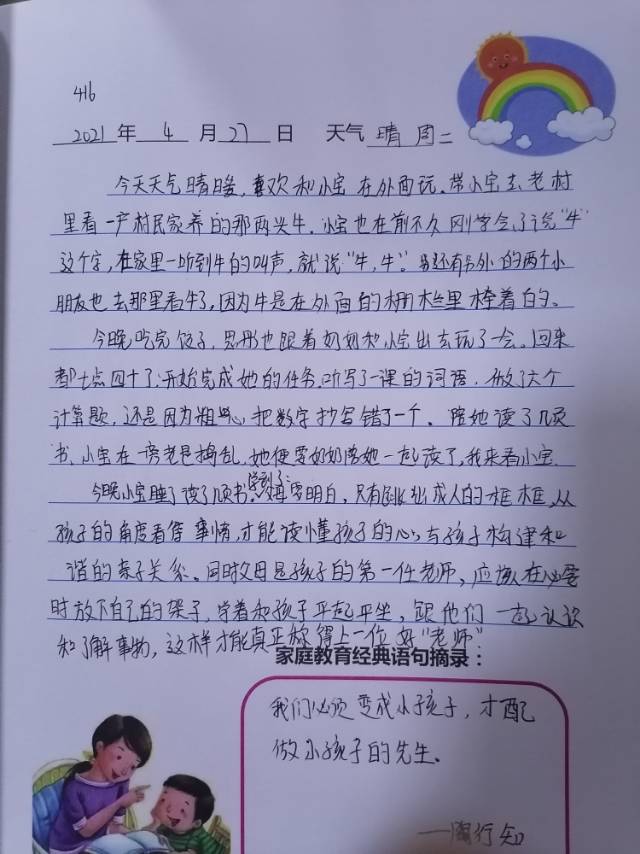 416
2021 年 4 月 27 日 天气 晴 周二
今天天气晴暖,喜欢和小宝在外面玩。带小宝去老村
里看一户村民家养的那两头牛。小宝也在前不久刚学会了说“牛”
这个字,在家里一听到牛的叫声,就说“牛,牛”。另还有另外的两个小
朋友也去那里看牛了,因为牛是在外面的栅栏里棒着的。
今晚吃完饺子,思彤也跟着奶奶和小宝出去玩了一会。回来
都七点四十了,开始完成她的任务,听写了一课的词语,做了六个
计算题,还是因为粗心,把数字抄写错了一个。陪她读了几页
书,小宝在一旁老是捣乱,她便要奶奶陪她一起读了,我来看小宝。
今晚小宝睡了读了几页书,学到了:父母要明白,只有跳出成人的框框,从
孩子的角度看待事情,才能读懂孩子的心,与孩子构建和
谐的亲子关系。同时父母是孩子的第一任老师,应该在必要
时放下自己的架子,学着和孩子平起平坐,跟他们一起认识
和了解事物,这样才能真正称得上一位好“老师”
家庭教育经典语句摘录:
我们必须变成小孩子,才配
做小孩子的先生。
——陶行知